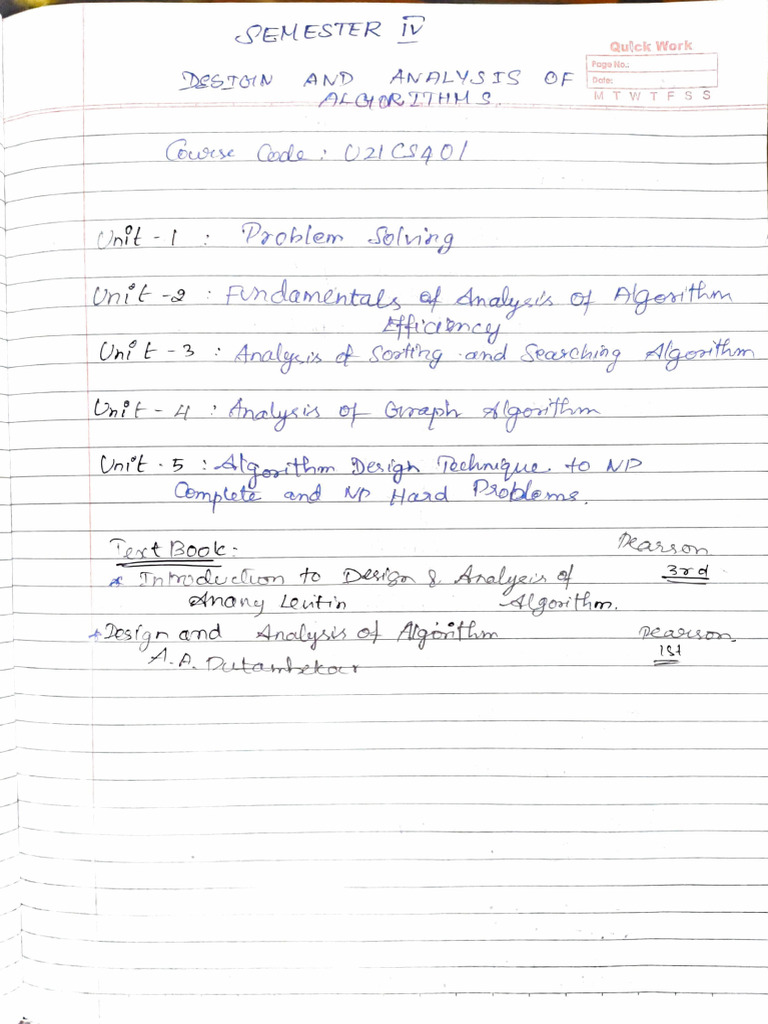 SEMESTER IV
Quick Work
Page No.:
Date:
M T W T F S S
DESIGN AND ANALYSIS OF
ALGORITHMS.
Course Code : U21CS401
Unit - 1 : Problem Solving
Unit - 2 : Fundamentals of Analysis of Algorithm
Efficiency
Unit - 3 : Analysis of Sorting and Searching Algorithm
Unit - 4 : Analysis of Graph Algorithm
Unit - 5 : Algorithm Design Technique to NP
Complete and NP Hard Problems.
Text Book : Pearson
* Introduction to Design & Analysis of 3rd
Anany Levitin Algorithm.
* Design and Analysis of Algorithm Pearson
A.A. Putambekar 1st